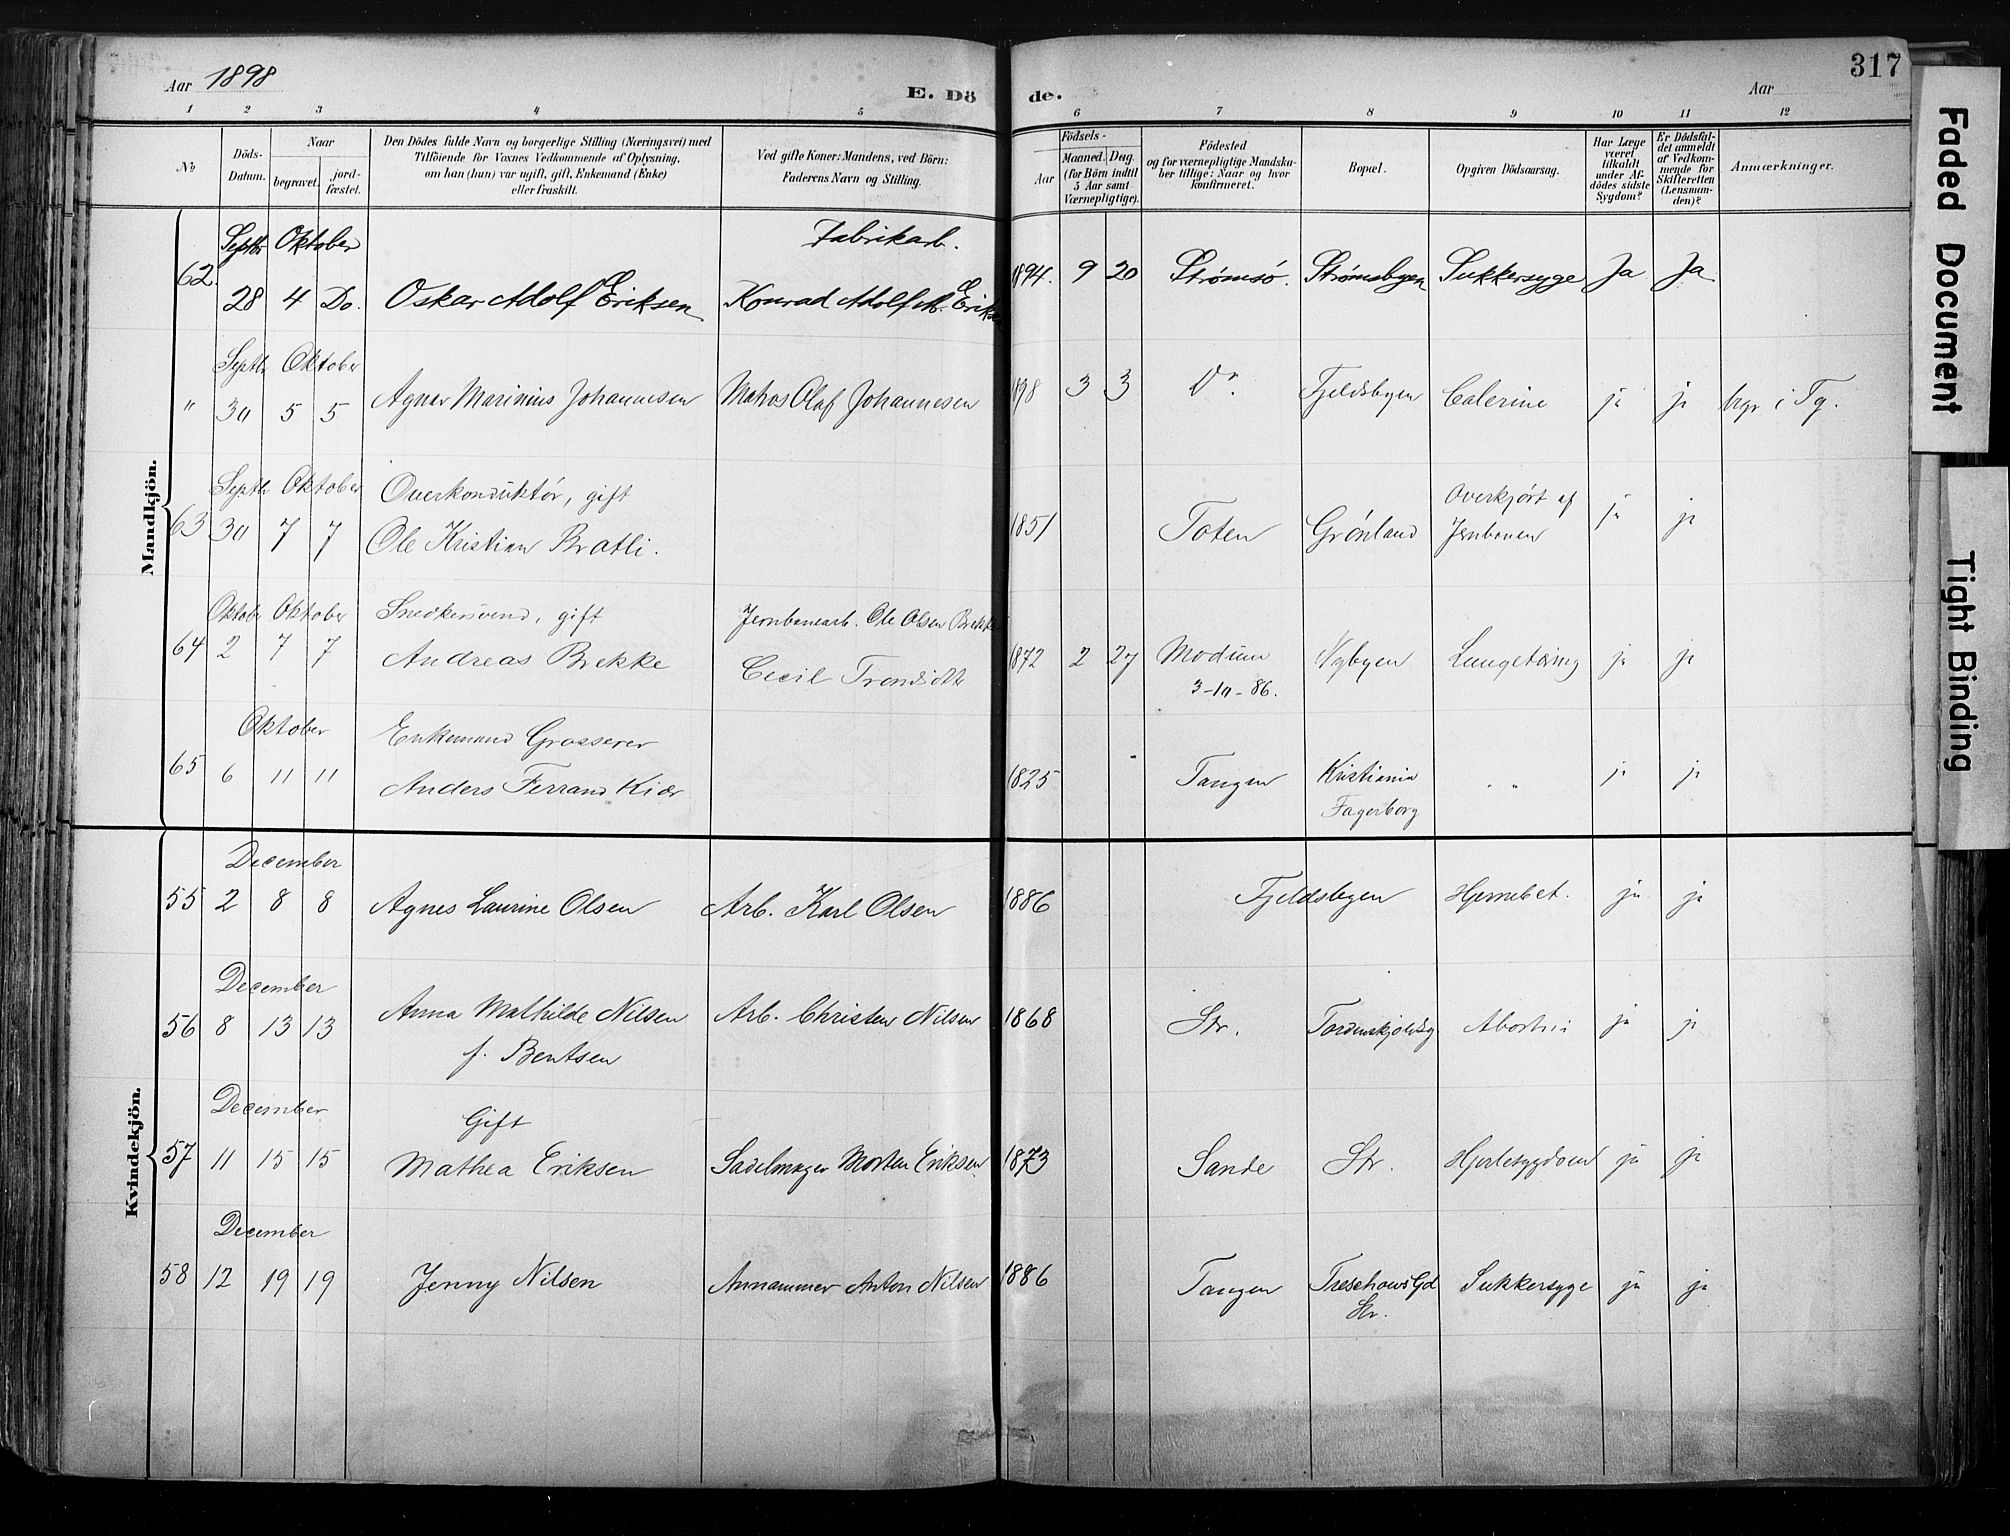 Aar 1898
E. Döde.
Aar
317
1 2 3 4 5 6 7 8 9 10 11 12
No
Döds-Datum.
Naar
begravet.
jord-fæstet.
Den Dödes fulde Navn og borgerlige Stilling (Næringsvei) med
Tilföiende for Voxnes Vedkommende af Oplysning,
om han (hun) var ugift, gift, Enkemand (Enke)
eller fraskilt.
Ved gifte Koner: Mandens, ved Börn:
Faderens Navn og Stilling.
Födsels-
Aar
Maaned. Dag.
(for Börn indtil
5 Aar samt
Værnepligtige).
Födested
og for værnepligtige Mandska-
ber tillige: Naar og hvor
konfirmeret.
Bopæl.
Opgiven Dödsaarsag.
Har Læge
været
tilkaldt
under Af-
dödes sidste
Sygdom?
Er Dödsfal-
det anmeldt
af Vedkom-
mende for
Skifteretten
(Lensman-
den)?
Anmærkninger.
Mandkjön.
Septbr Oktober Fabrikarb.
62. 28 4 Do. Oskar Adolf Eriksen Konrad Adolf M. Eriksen 1894. 9 20 Strømsø. Strømsbyen Sukkersyge Ja Ja
Septbr Oktober
" 30 5 5 Agnar Marinius Johannesen Matros Olaf Johannesen 1898 3 3 Do. Fjeldsbyen Colerine ja ja bgr i Tg.
Septbr Oktober Overkonduktör, gift Overkjört af
63 30 7 7 Ole Kristian Bratli. 1851 Toten Grönland Jernbanen ja ja
Oktober Oktober Snedkersvend, gift Jernbanearb. Ole Olsen Brekke
64 2 7 7 Andreas Brekke Cecil 1872 2 27 Modum Nybyen Lungetæring ja ja
3-10-86.
Oktober Enkemand Grosserer
65 6 11 11 Anders Ferrand Kiær 1825 Tangen Kristiania " " ja ja
Fagerborg
Kvindekjön.
December
55 2 8 8 Agnes Laurine Olsen Arb. Karl Olsen 1886 Fjeldsbyen Hjernebet. ja ja
December
56 8 13 13 Anna Mathilde Nilsen Arb. Christen Nilsen 1868 Str. Tordenskjoldsg ja ja
f. Bentsen
December Gift
57 11 15 15 Mathea Eriksen Sadelmager Morten Eriksen 1873 Sande Str. Hjertesygdom ja ja
December
58 12 19 19 Jenny Nilsen Annammer Anton Nilsen 1886 Tangen Treschows Gd Sukkersyge ja ja
Str.
Faded Document
Tight Binding